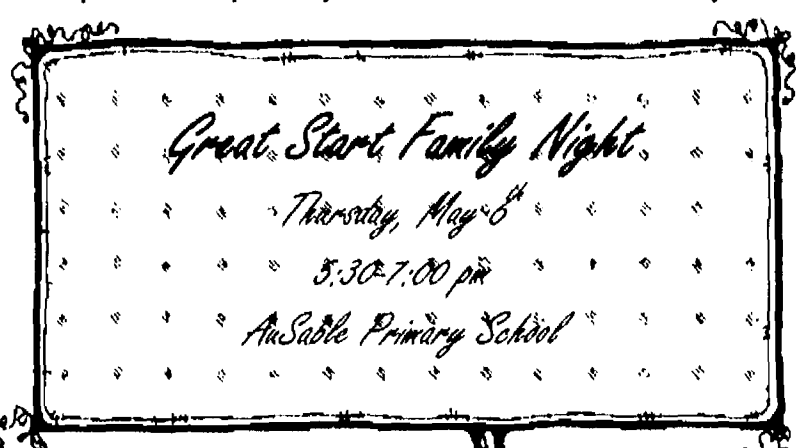 Great Start Family Night
Thursday, May 6th
5:30-7:00 pm
AuSable Primary School